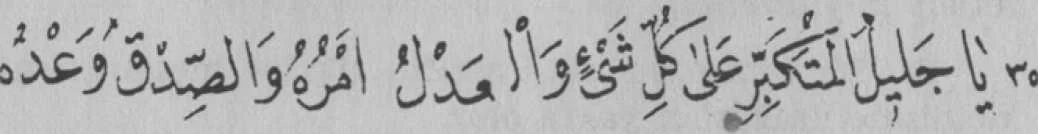 ٣٥ يَا جَلِيلُ الْمُتَكَبِّرِ عَلىٰ كُلِّ شَیْءٍ وَالْعَدْلُ اَمْرُهُ وَالصِّدْقُ وَعْدُهُ